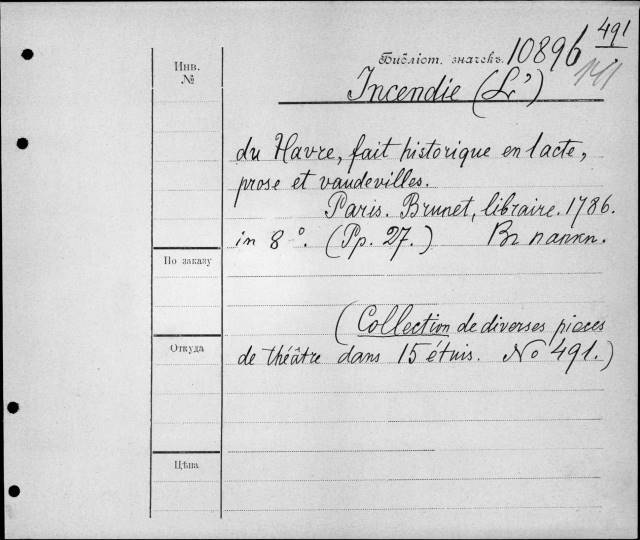 491
Библіот. значекъ. 10896
Инв.
№
Incendie (L')
du Havre, fait historique en 1 acte,
prose et vaudevilles.
Paris. Brunet, libraire. 1786.
in 8°. (Pp. 27.) Въ папкѣ.
По заказу
(Collection de diverses pieces
Откуда
de théâtre dans 15 étuis. No 491.)
Цѣна